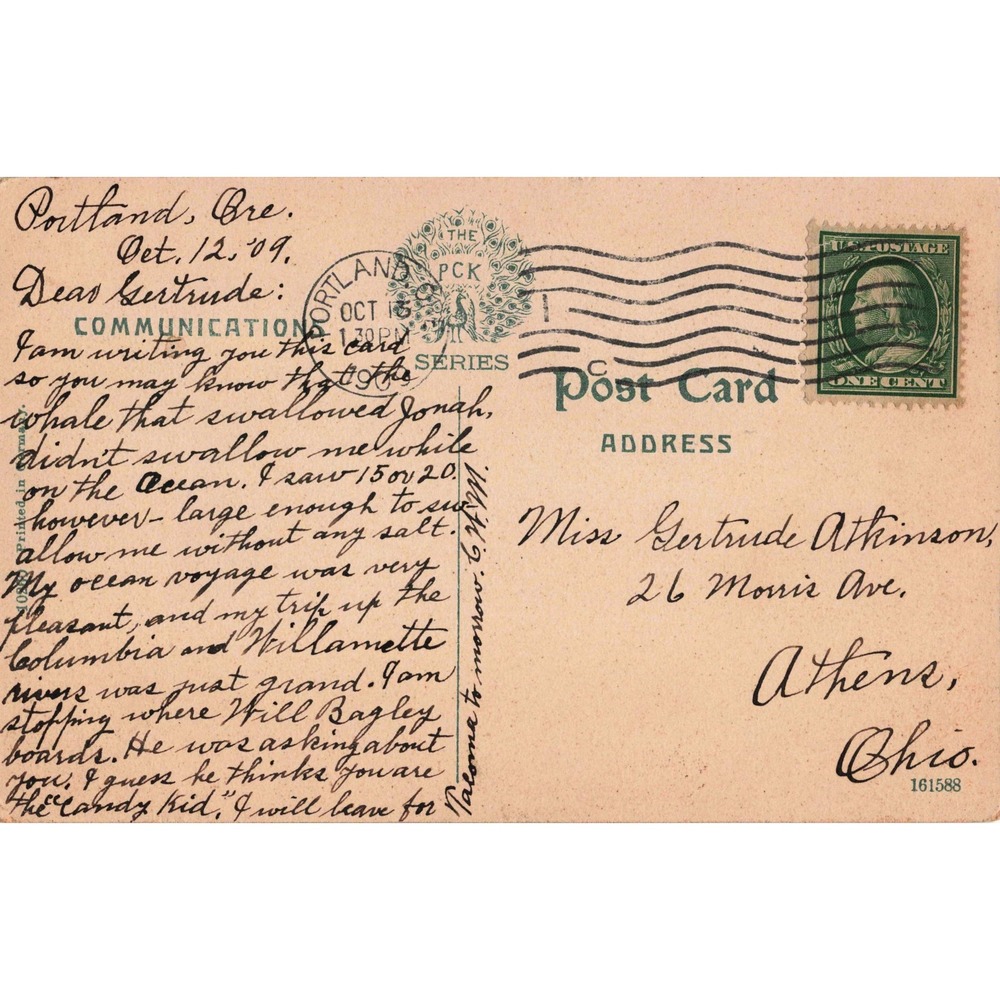 Portland, Ore.
Oct. 12, '09.
Dear Gertrude:
COMMUNICATIONS
I am writing you this card
so you may know that the
whale that swallowed Jonah,
didn't swallow me while
on the Ocean. I saw 15 or 20.
however – large enough to sw
allow me without any salt.
My ocean voyage was very
pleasant, and my trip up the
Columbia and Willamette
rivers was just grand. I am
stopping where Will Bagley
boards. He was asking about
you. I guess he thinks you are
the "Candy Kid". I will leave for
to morrow. C.W.M.
Printed in Germany.
THE
PCK
SERIES
PORTLAND
OCT 13
1-30 PM
1909
U.S. POSTAGE
ONE CENT
Post Card
ADDRESS
Miss Gertrude Atkinson,
26 Morris Ave.
Athens,
Ohio.
161588